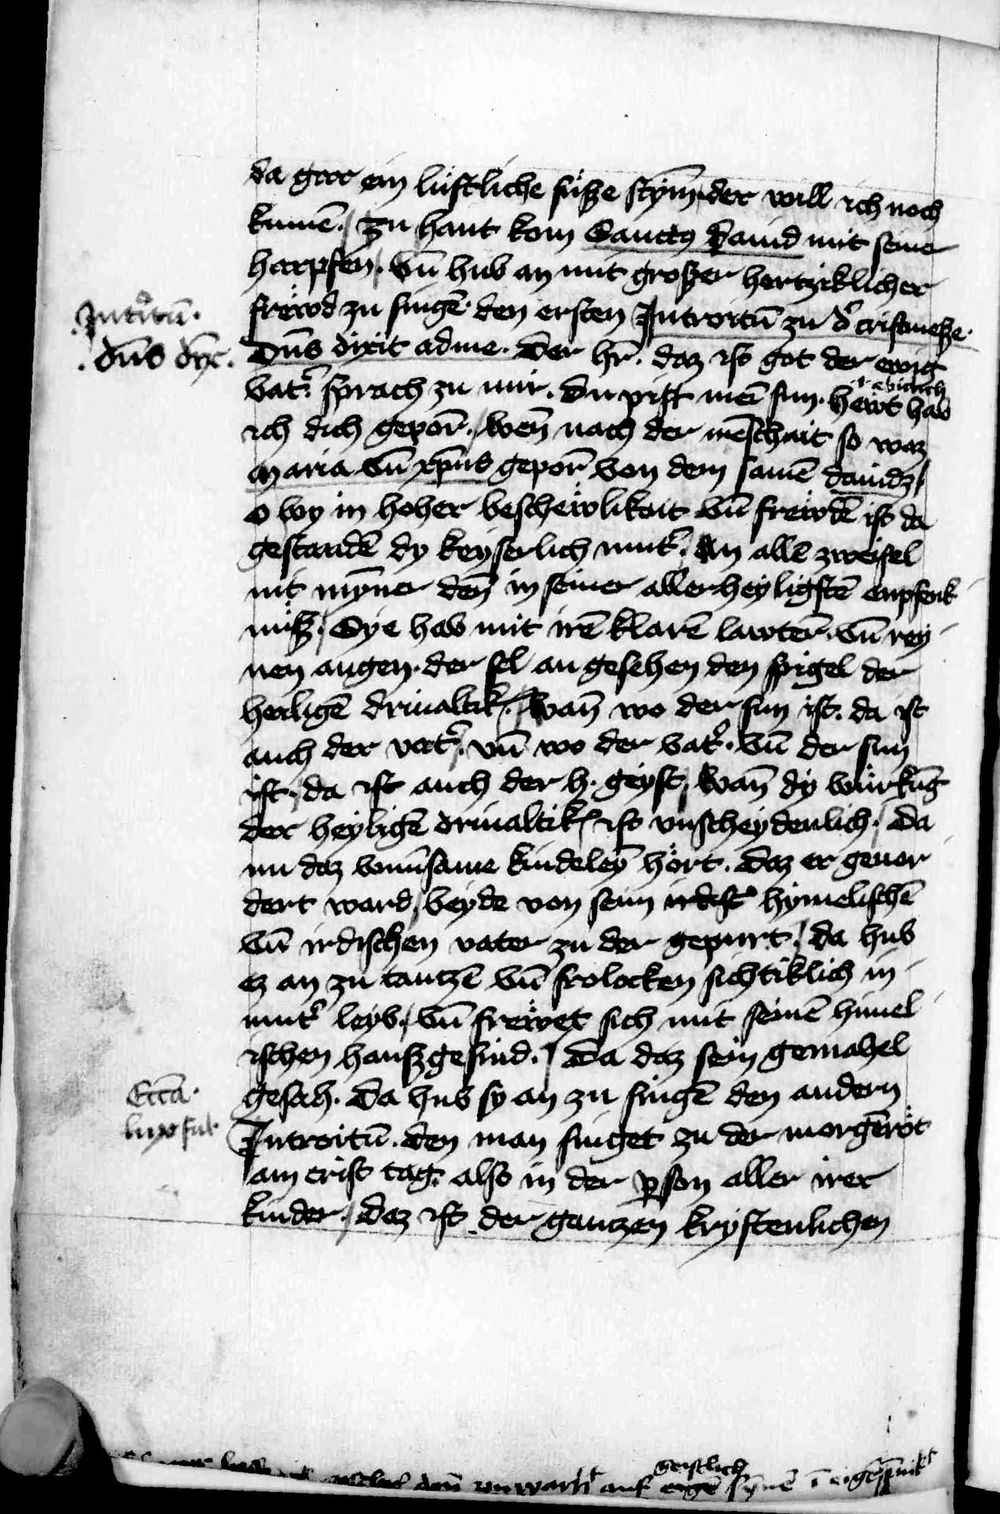 da gar ein lüstliche süsze stym̄. der will ich noch
kumē. / Zu hant kom Sanctꝰ Dauid mit seiner
harpfen / Vn̄ hub an mit groszer hertziklicher
frewd zu singē den ersten Introitū zu dˀ cristmesze.
Introitū.
. dn̄s dix̄.
Dn̄s dixit ad me. Der hr̄. daz ist got der ewig
vatˀ. sprach zu mir. Du pist mei͞ sun. hewt hab
ich dich geporn̄. / Wen̄ nach der mēschait so waz
Maria Vn̄ xp̄us geporn̄ von dem samē dauidz /
O wy in hoher beschewlikait Vn̄ frewdē ist da
gestandē dy keyserlich mutˀ. An allē zweifel
nit myner den̄ in seiner allerheyligstē enpfenk
nüsz / Sye hab mit irē klarē lawtern̄. Vn̄ rey-
nen augen. der sel an gesehen den spigel der
heiligē driualtikˀ. / Wan̄ wo der sun ist. da ist
auch der vatˀ. / vn̄ wo der vatˀ. Vn̄ der sun
ist. da ist auch der h. geyst / Wan̄ dy würkūg
der heyligē driualtikˀ ist vnscheydenlich. / Da
nu daz wunsame kindeley̅ hört. Daz er geuor-
dert ward / beyde von seim hymelischē
Vn̄ irdischen vater zu der gepurt. / da hub
ez an zu tantzē Vn̄ frolocken sichtiklich in
mutˀ leyb. / Vn̄ frewet sich mit seinē himel
ischen hauszgesind. / Da daz sein gemahel
gesah. Da hub sy an zu singē den andern
Lux ful.
Introitū. den man singet zu der morgēröt
am crist tag. also in der ꝑson aller irer
kinder. / Daz ist der gantzen krystenlichen
geistlich